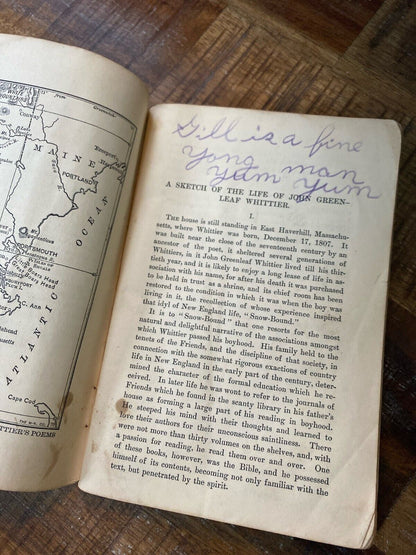 MAINE
PORTLAND
PORTSMOUTH
OCEAN
ATLANTIC
C. Ann
Cape Cod
TTIER'S POEMS
Gill is a fine
Yong man
Yum Yum
A SKETCH OF THE LIFE OF JOHN GREEN-
LEAF WHITTIER.
I.
THE house is still standing in East Haverhill, Massachu-
setts, where Whittier was born, December 17, 1807. It
was built near the close of the seventeenth century by an
ancestor of the poet, it sheltered several generations of
Whittiers, in it John Greenleaf Whittier lived till his thir-
tieth year, and it is likely to enjoy a long lease of life in as-
sociation with his name, for after his death it was purchased
to be held in trust as a shrine, and its chief room has been
restored to the condition in which it was when the boy was
living in it, the recollection of whose experience inspired
that idyl of New England life, "Snow-Bound."
It is to "Snow-Bound" that one resorts for the most
natural and delightful narrative of the associations amongst
which Whittier passed his boyhood. His family held to the
tenets of the Friends, and the discipline of that society, in
connection with the somewhat rigorous exactions of country
life in New England in the early part of the century, deter-
mined the character of the formal education which he re-
ceived. In later life he was wont to refer to the journals of
Friends which he found in the scanty library in his father's
house as forming a large part of his reading in boyhood.
He steeped his mind with their thoughts and learned to
love their authors for their unconscious saintliness. There
were not more than thirty volumes on the shelves, and, with
a passion for reading, he read them over and over. One
of these books, however, was the Bible, and he possessed
himself of its contents, becoming not only familiar with the
text, but penetrated by the spirit.